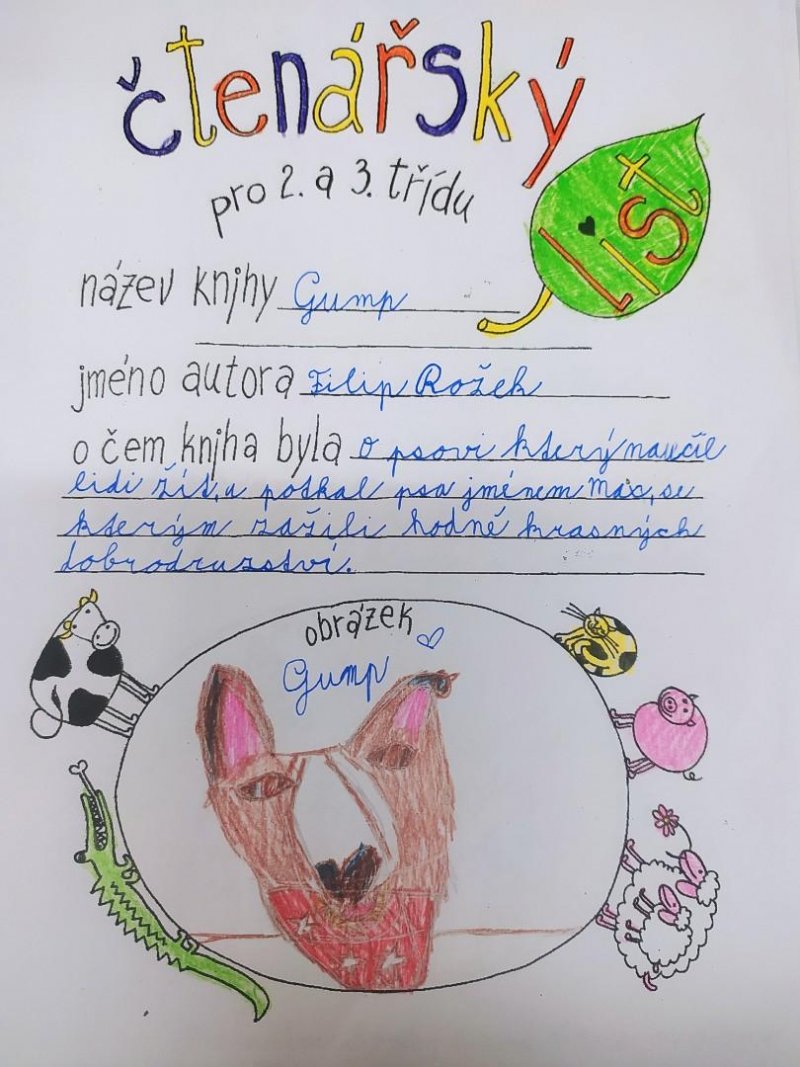 čtenářský
list
pro 2. a 3. třídu
název knihy Gump
jméno autora Filip Rožek
o čem kniha byla O psovi který naučil
lidi žít, a potkal psa jménem Max, se
kterým zažili hodně krasných
dobrodruzství.
obrázek
Gump